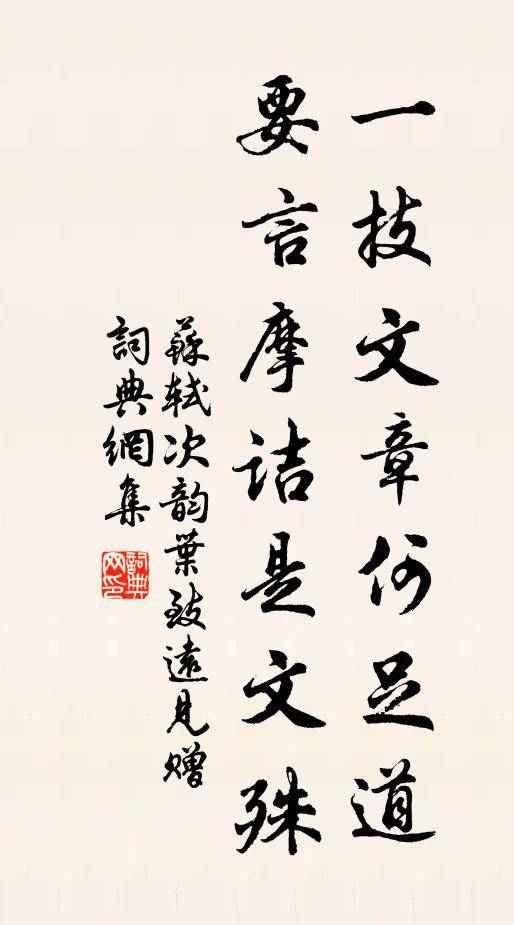 一技文章何足道
要言摩诘是文殊
蘇軾次韵葉致遠見赠
詞典網集
詞典網印